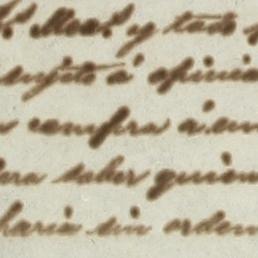 Real y todo
sugeto á opinio
compra á un
para saber quien
haria sin orden